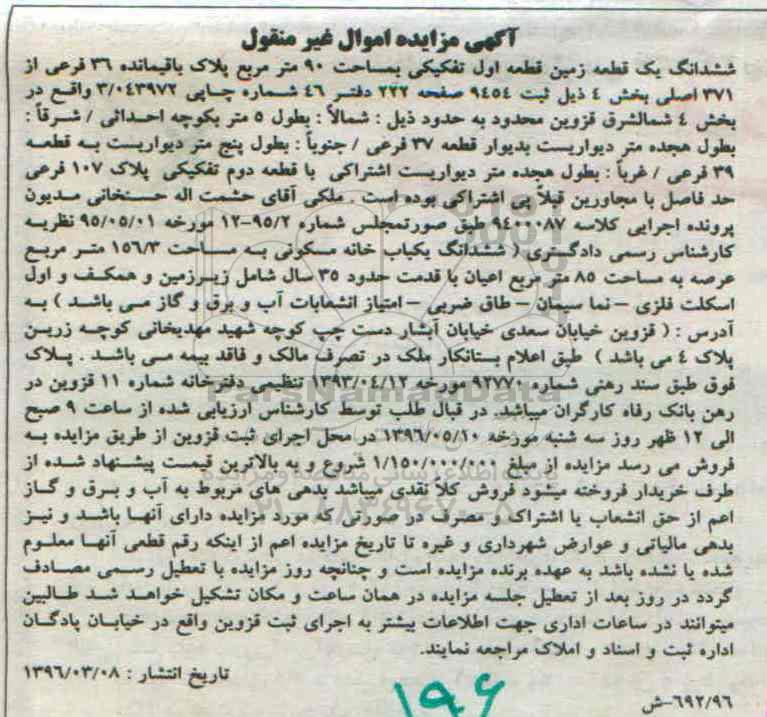 آگهی مزایده اموال غیر منقول
ششدانگ یک قطعه زمین قطعه اول تفکیکی بمساحت ۹۰ متر مربع پلاک باقیمانده ۳۶ فرعی از
۳۷۱ اصلی بخش ٤ ذیل ثبت ۹٤٥٤ صفحه ۲۲۲ دفتر ٤٦ شماره چاپی ۳/۰٤۳۹۷۲ واقع در
بخش ٤ شمالشرق قزوین محدود به حدود ذیل : شمالاً : بطول ٥ متر بکوچه احداثی / شرقاً :
بطول هجده متر دیواریست بدیوار قطعه ۳۷ فرعی / جنوباً : بطول پنج متر دیواریست به قطعه
۳۹ فرعی / غرباً : بطول هجده متر دیواریست اشتراکی با قطعه دوم تفکیکی پلاک ۱۰۷ فرعی
حد فاصل با مجاورین قبلاً پی اشتراکی بوده است . ملکی آقای حشمت اله حسنخانی مدیون
پرونده اجرایی کلاسه ۹٤۰۰۰۸۷ طبق صورتمجلس شماره ۹٥/۲-۱۲ مورخه ۹٥/۰٥/۰۱ نظریه
کارشناس رسمی دادگستری ( ششدانگ یکباب خانه مسکونی به مساحت ۱٥٦/۳ متر مربع
عرصه به مساحت ۸٥ متر مربع اعیان با قدمت حدود ۳٥ سال شامل زیرزمین و همکف و اول
اسکلت فلزی – نما سیمان – طاق ضربی – امتیاز انشعابات آب و برق و گاز می باشد ) به
آدرس : ( قزوین خیابان سعدی خیابان آبشار دست چپ کوچه شهید مهدیخانی کوچه زرین
پلاک ٤ می باشد ) طبق اعلام بستانکار ملک در تصرف مالک و فاقد بیمه می باشد . پلاک
فوق طبق سند رهنی شماره ۹۲۷۷۰ مورخه ۱۳۹۳/۰٤/۱۲ تنظیمی دفترخانه شماره ۱۱ قزوین در
رهن بانک رفاه کارگران میباشد. در قبال طلب توسط کارشناس ارزیابی شده از ساعت ۹ صبح
الی ۱۲ ظهر روز سه شنبه مورخه ۱۳۹٦/۰٥/۱۰ در محل اجرای ثبت قزوین از طریق مزایده به
فروش می رسد مزایده از مبلغ ۱/۱٥۰/۰۰۰/۰۰۰ شروع و به بالاترین قیمت پیشنهاد شده از
طرف خریدار فروخته میشود فروش کلاً نقدی میباشد بدهی های مربوط به آب و برق و گاز
اعم از حق انشعاب یا اشتراک و مصرف در صورتی که مورد مزایده دارای آنها باشد و نیز
بدهی مالیاتی و عوارض شهرداری و غیره تا تاریخ مزایده اعم از اینکه رقم قطعی آنها معلوم
شده یا نشده باشد به عهده برنده مزایده است و چنانچه روز مزایده با تعطیل رسمی مصادف
گردد در روز بعد از تعطیل جلسه مزایده در همان ساعت و مکان تشکیل خواهد شد طالبین
میتوانند در ساعات اداری جهت اطلاعات بیشتر به اجرای ثبت قزوین واقع در خیابان پادگان
اداره ثبت و اسناد و املاک مراجعه نمایند.
تاریخ انتشار : ۱۳۹٦/۰۳/۰۸
٦۹۲/۹٦-ش
۱۹۶
ParsNamadData